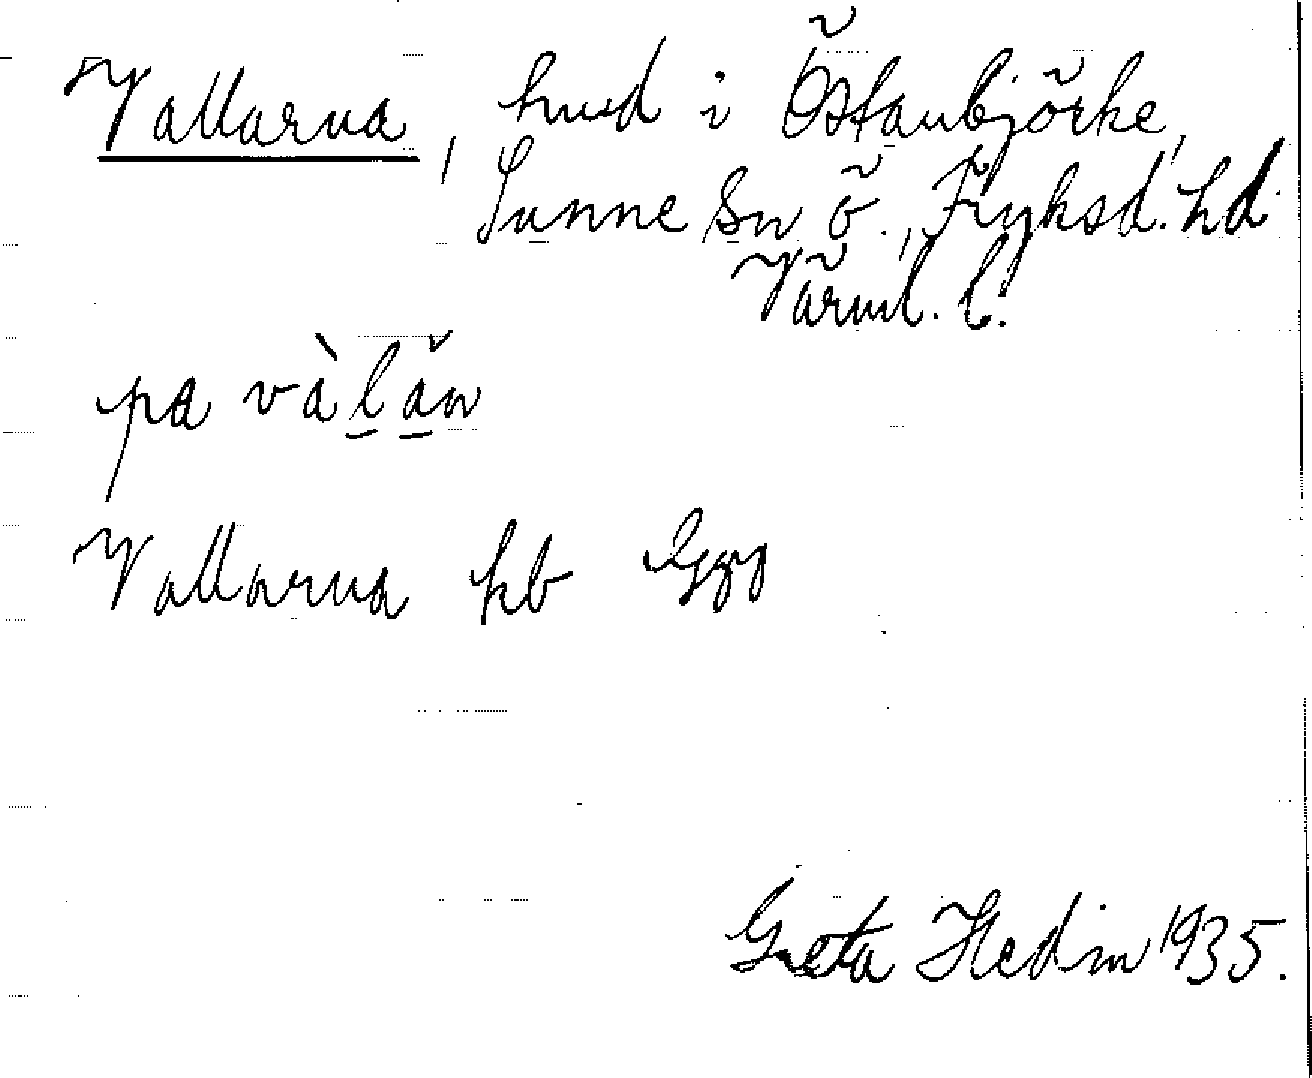 Vallarna, hmd i Östanbjörke,
Sunne sn ö., Fryksd. hd
Värml. l.
pa vàlăn
Vallarna hb
Greta Hedin 1935.